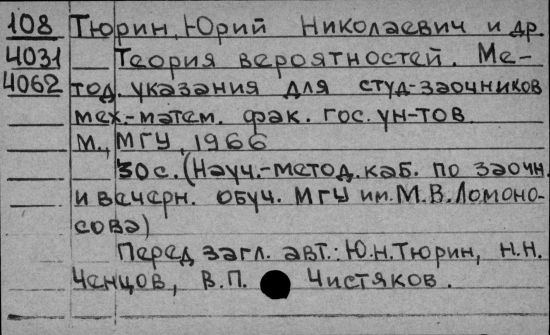 108 Тюрин, Юрий Николаевич и др.
4031 Теория вероятностей. Ме-
4062 тод. указания для студ-заочников
мех.-матем. фак. гос. ун-тов
М., МГУ, 1966
30с. (Науч.-метод. каб. по заочн.
и вечерн. обуч. МГУ им. М.В. Ломоно-
сова)
Перед загл. авт.: Ю.Н. Тюрин, Н.Н.
Ченцов, В.П. Чистяков.